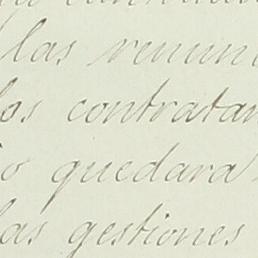 las renun
los contratan
o quedara
las gestiones